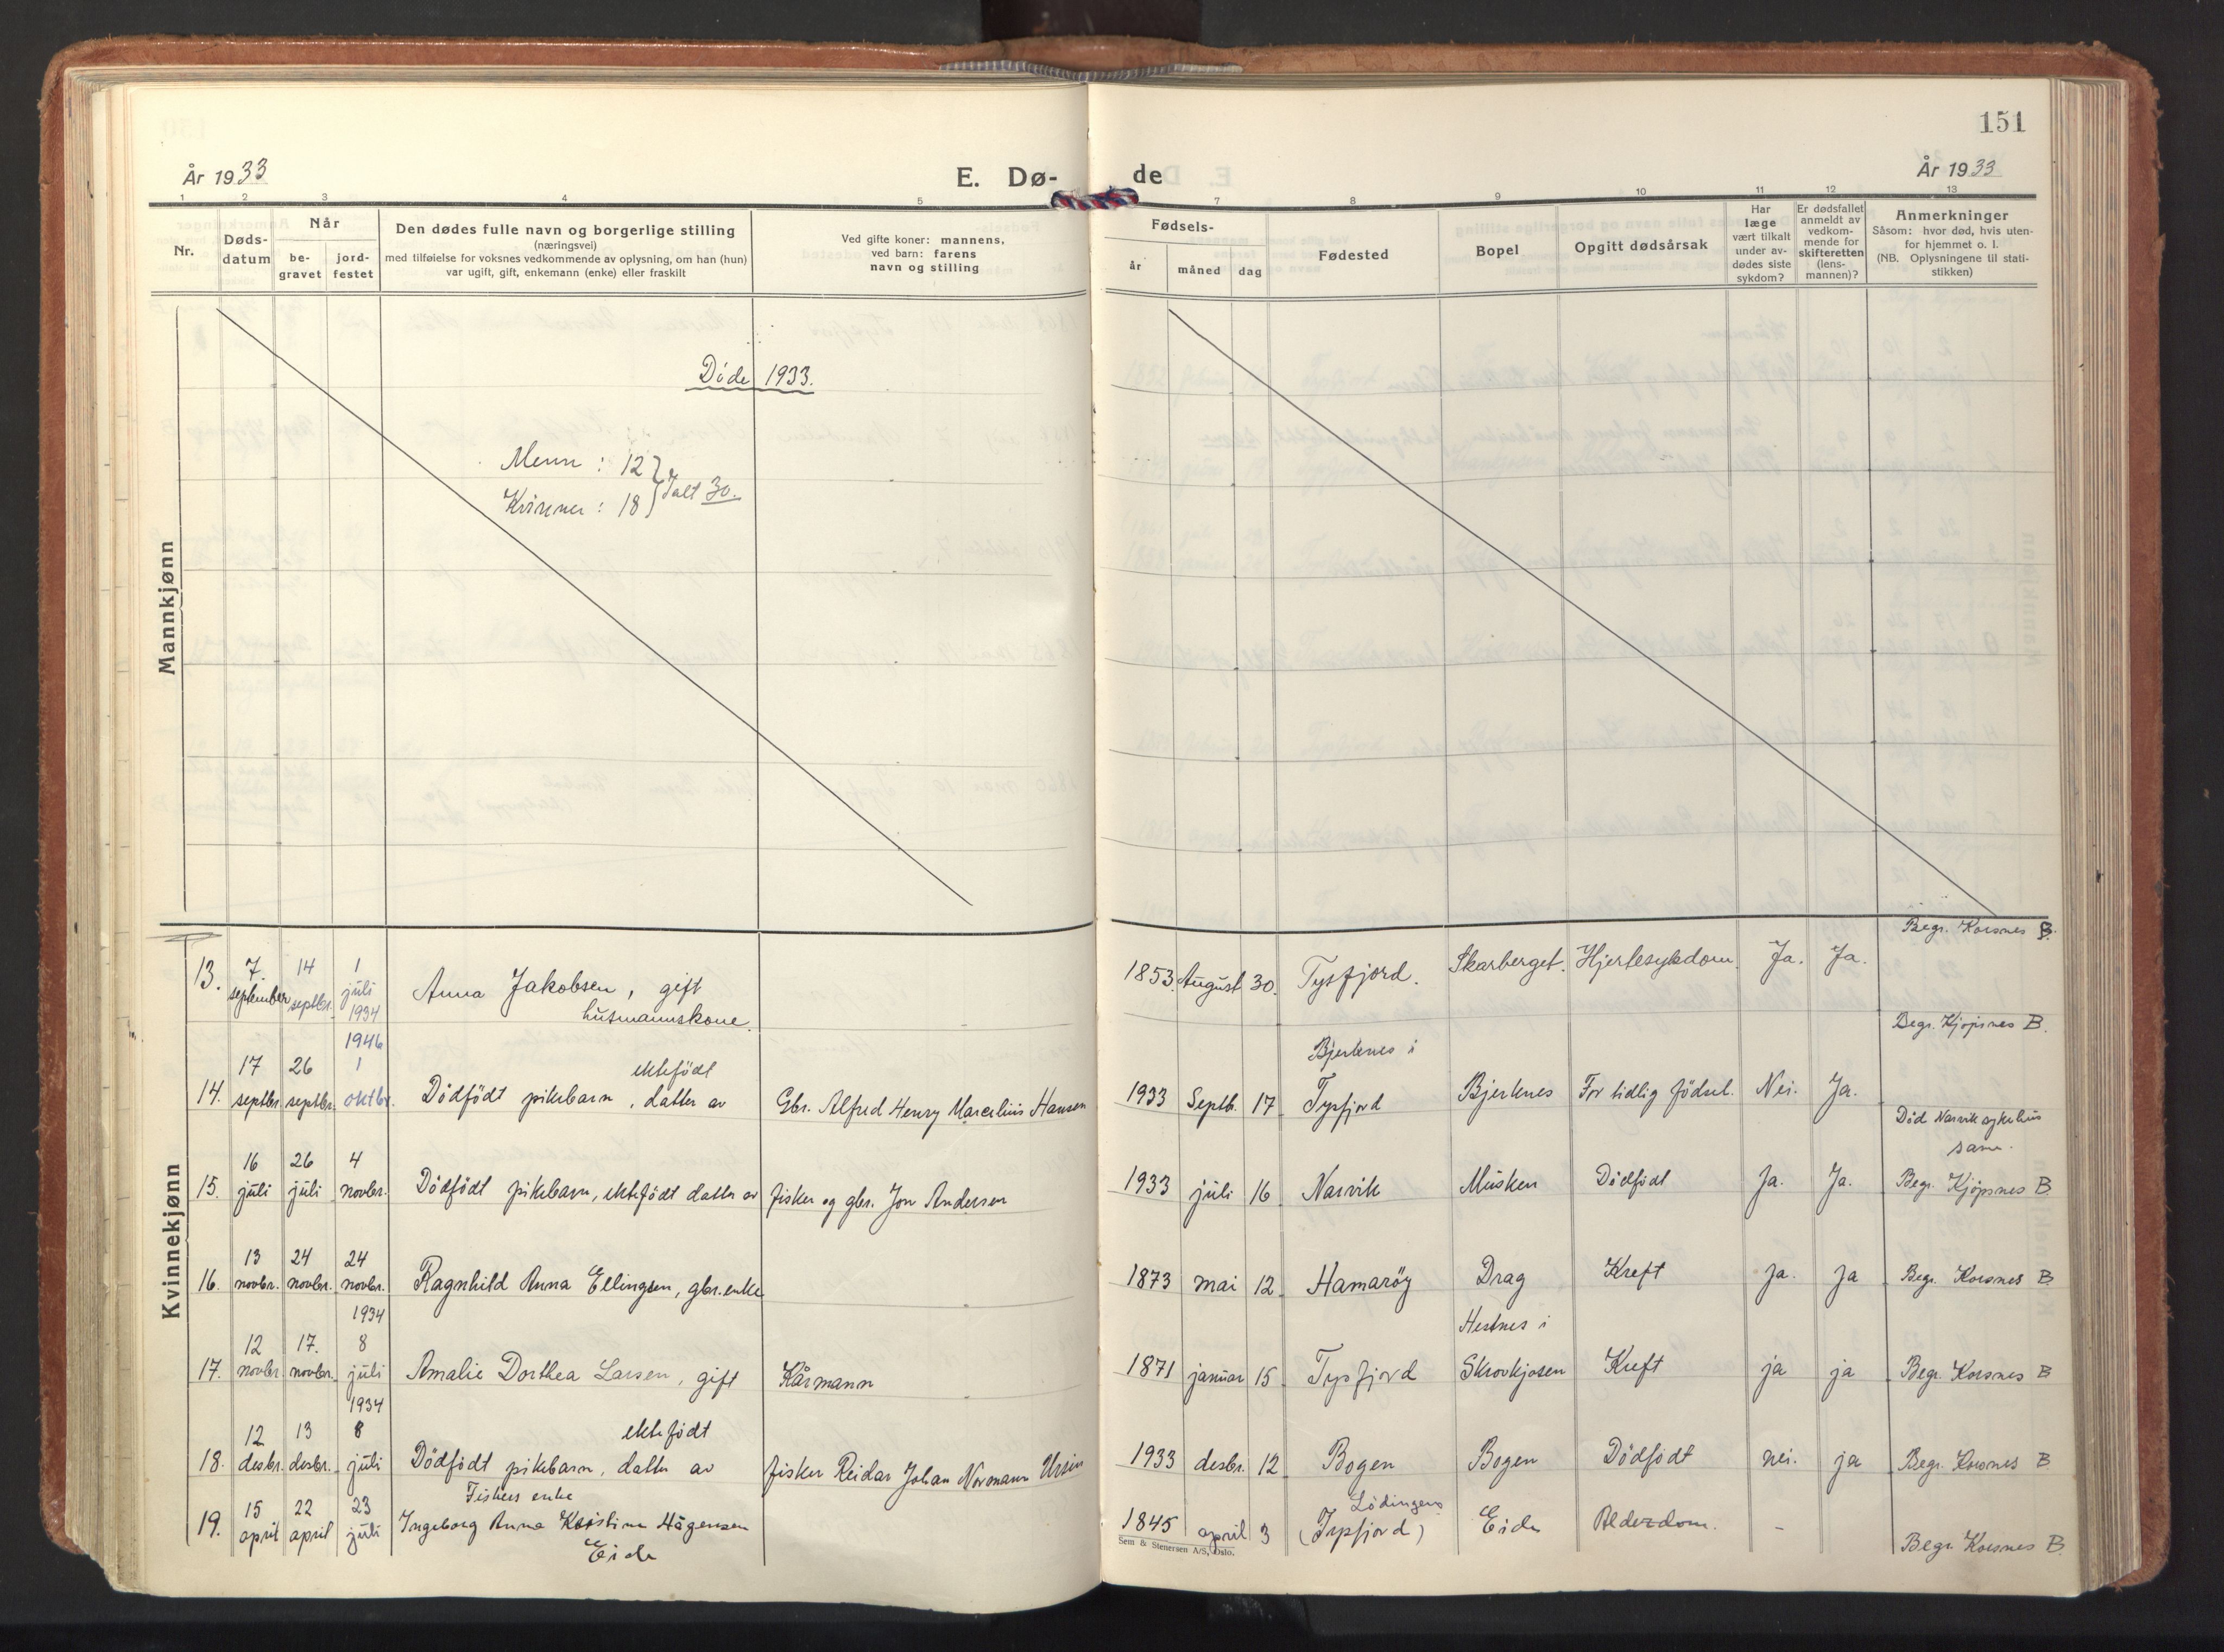 151
År 1933
E. Dø-
de
År 1933
1 2 3 4 5 7 8 9 10 11 12 13
Nr.
Døds-
datum
Når
be-
gravet
jord-
festet
Den dødes fulle navn og borgerlige stilling
(næringsvei)
med tilføielse for voksnes vedkommende av oplysning, om han (hun)
var ugift, gift, enkemann (enke) eller fraskilt
Ved gifte koner: mannens,
ved barn: farens
navn og stilling
Fødsels-
år
måned
dag
Fødested
Bopel
Opgitt dødsårsak
Har
læge
vært tilkalt
under av-
dødes siste
sykdom?
Er dødsfallet
anmeldt av
vedkom-
mende for
skifteretten
(lens-
mannen)?
Anmerkninger
Såsom: hvor død, hvis uten-
for hjemmet o. l.
(NB. Oplysningene til stati-
stikken)
Mannkjønn
Döde 1933.
Menn : 12
Kvinner : 18
Ialt 30.
Kvinnekjønn
Begr. Korsnes B.
13. 7. september 14 septbr. 1 juli 1934 Anna Jakobsen, gift
husmannskone.
1853. August 30. Tysfjord. Skarberget. Hjertesykdom. Ja. Ja.
Begr. Kjöpsnes B.
14. 17 septbr. 26 septbr. 1946 1 oktbr. Dödfödt pikebarn, ektefödt datter av Gbr. Alfred Henry Marcelius Hansen
1933 Septb. 17 Bjerknes i Tysfjord Bjerknes For tidlig födsel. Nei. Ja.
Död Narvik sykehus
same.
15. 16 juli 26 juli 4 novbr. Dödfödt pikebarn, ektefödt datter av fisker og gbr. Jon Andersen
1933 juli 16 Narvik Musken Dödfödt Ja. Ja. Begr. Kjöpsnes B.
16. 13 novbr. 24 novbr. 24 novbr. Ragnhild Anna Ellingsen, gbr. enke
1873 mai 12 Hamaröy Drag Kreft Ja. Ja Begr. Korsnes B
17. 12 novbr. 17. novbr. 1934 8 juli Amalie Dorthea Larsen, gift Kårmann
1871 januar 15 Tysfjord Hestnes i Skrovkjosen Kreft ja ja Begr. Korsnes B
18. 12 desbr. 13 desbr. 1934 8 juli Dödfödt pikebarn, ektefödt datter av fisker Reidar Johan Normann Ursin
1933 desbr. 12 Bogen Bogen Dödfödt nei. ja Begr. Korsnes B
19. 15 april 22 april 23 juli Fiskers enke
Ingeborg Anna Kristine Hågensen
Eide
1845 april 3 Lödingen
(Tysfjord) Eide Alderdom. - Begr. Korsnes B.
Sem & Stenersen A/S, Oslo.